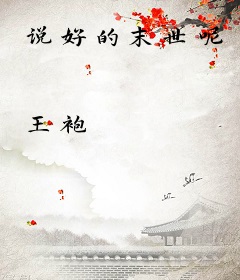 说好的末世呢
王袍